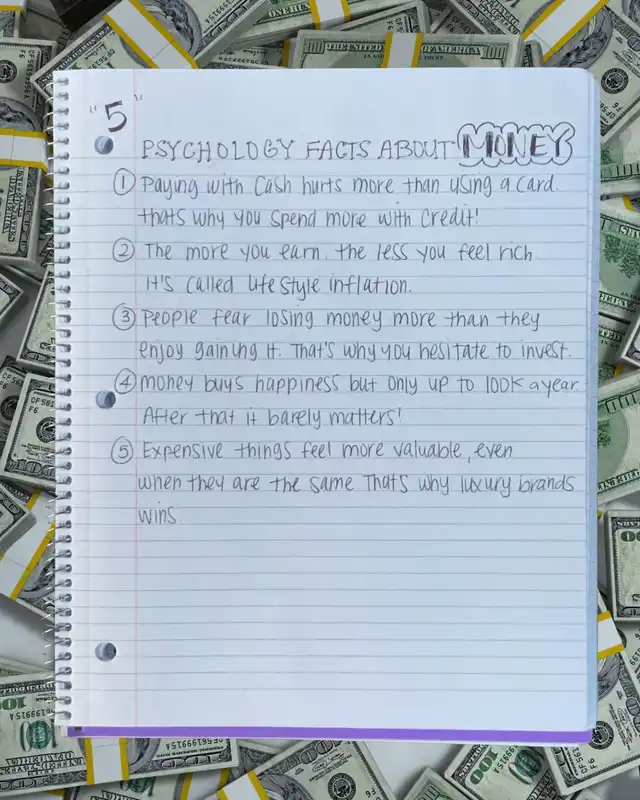 "5"
PSYCHOLOGY FACTS ABOUT MONEY
① Paying with Cash hurts more than using a card.
thats why you spend more with Credit!
② The more you earn. the less you feel rich
it's called life style inflation.
③ People fear losing money more than they
enjoy gaining it. That's why you hesitate to invest.
④ money buys happiness but only up to 100K a year
After that it barely matters!
⑤ Expensive things feel more valuable, even
when they are the same Thats why luxury brands
wins.